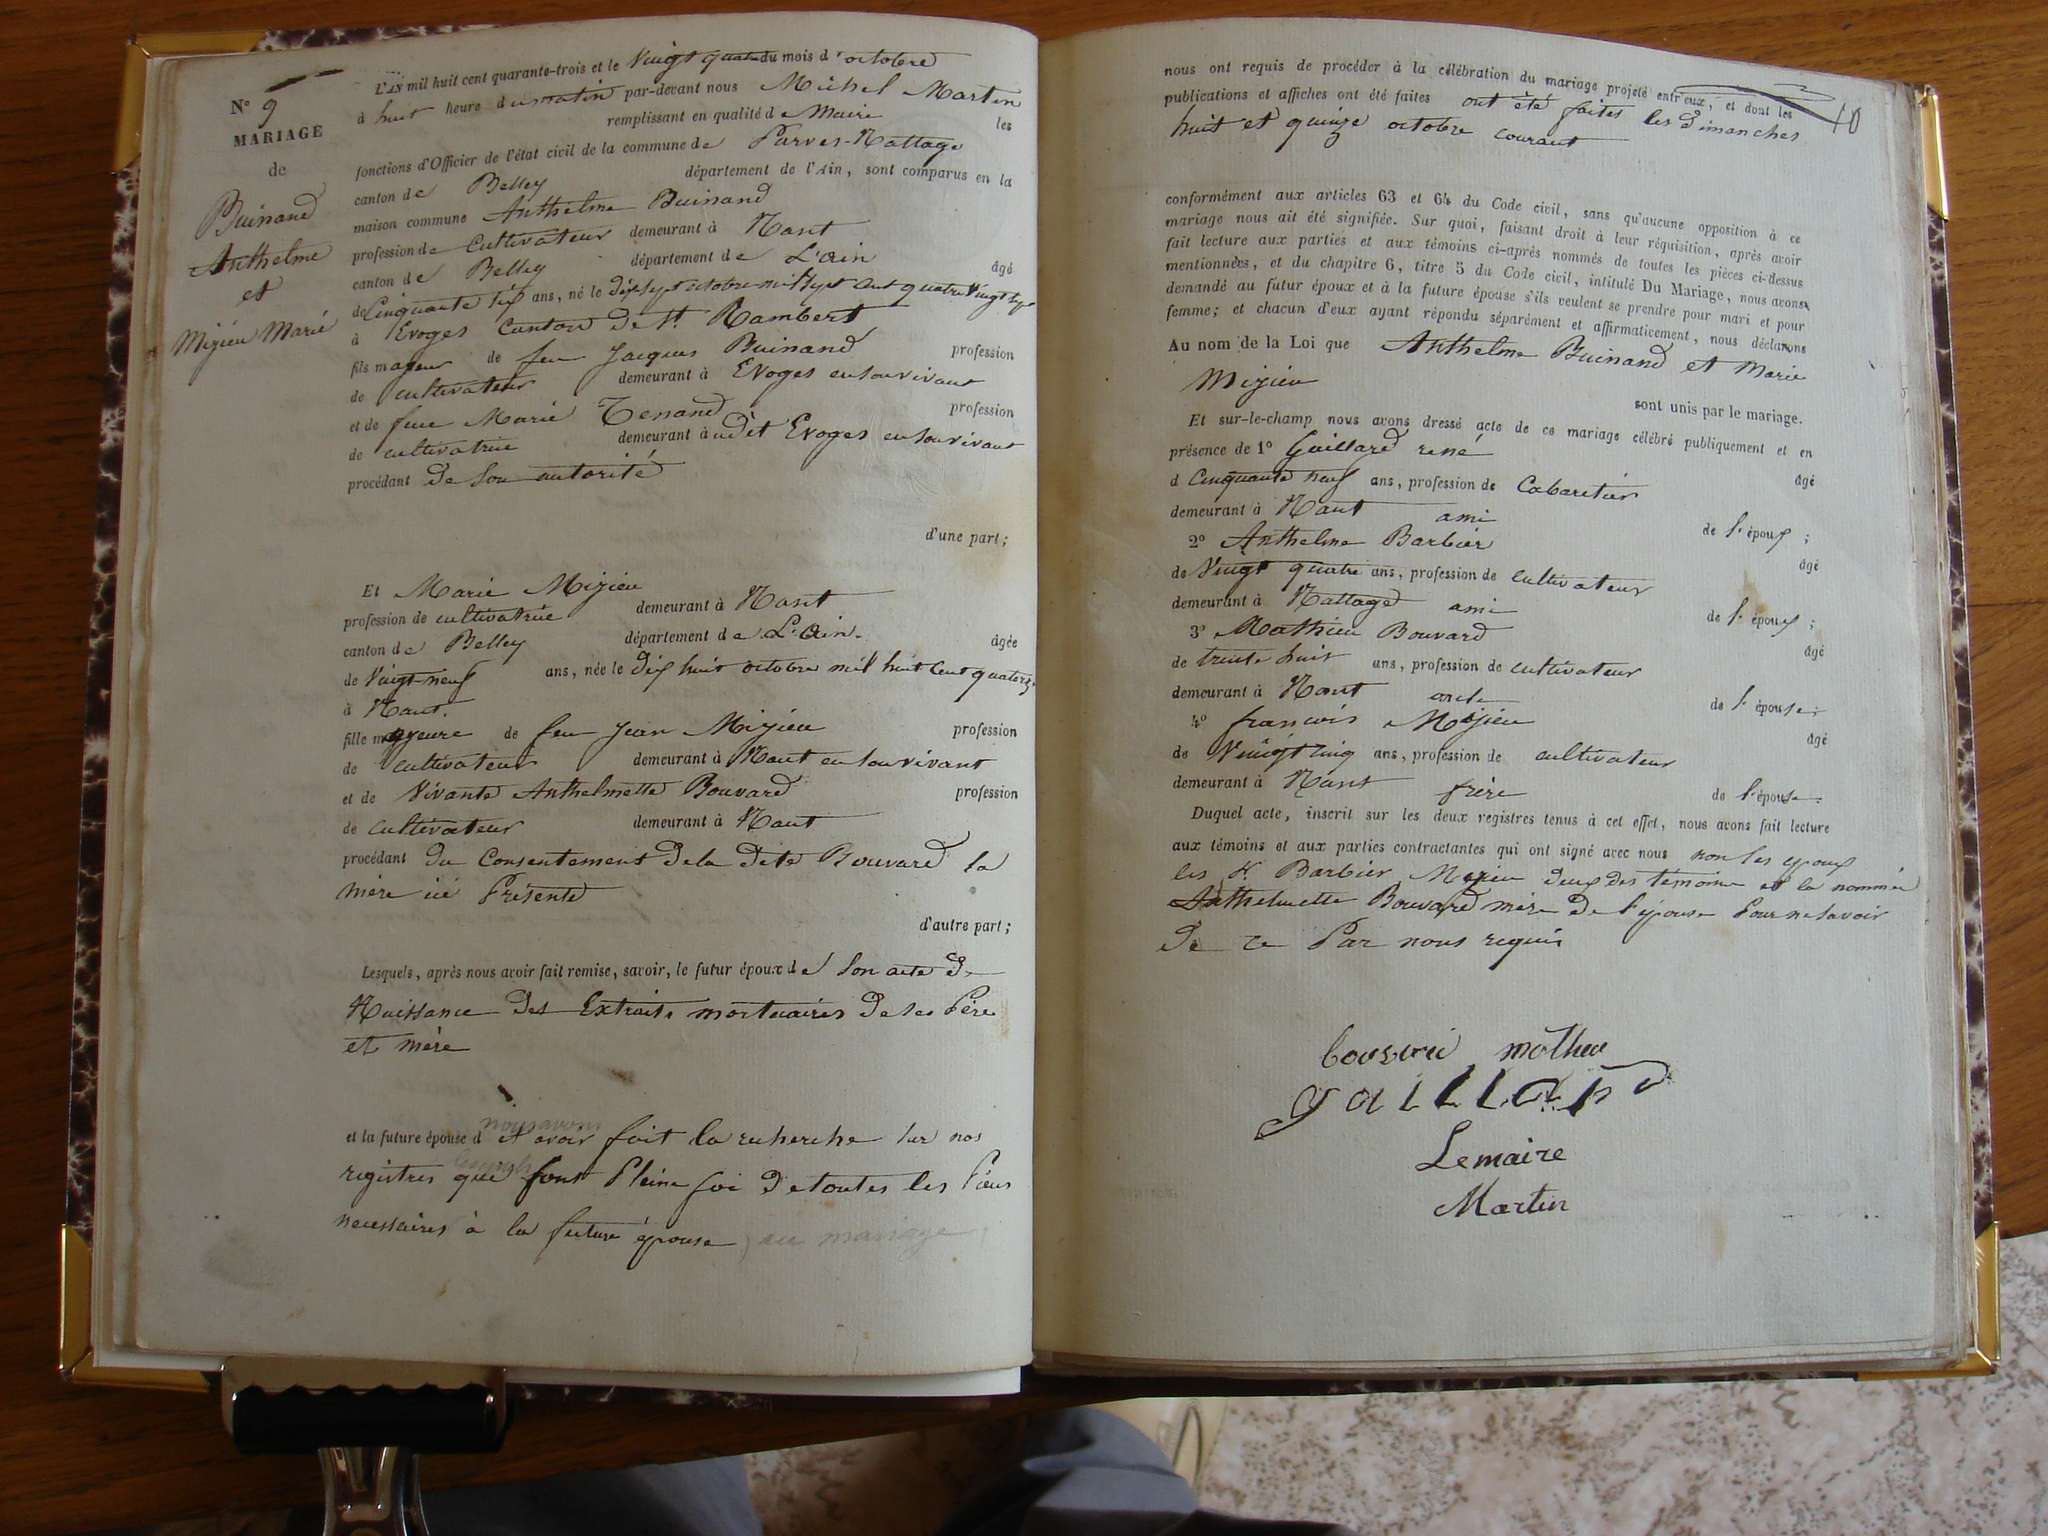 N° 9
MARIAGE
de
Buinand
Anthelme
et
Mizieu Marie
L'AN mil huit cent quarante-trois et le Vingt quatre du mois d'octobre
à huit heure du matin par-devant nous Michel Martin
remplissant en qualité de Maire les
fonctions d'Officier de l'état civil de la commune de Parves-Nattage
canton de Belley département de l'Ain, sont comparus en la
maison commune Anthelme Buinand
profession de Cultivateur demeurant à Nant
canton de Belley département de L'ain âgé
de Cinquante six ans, né le dix sept octobre mil Sept Cent quatre Vingt sept
à Evoges Canton de St. Rambert
fils majeur de feu Jacques Buinand profession
de cultivateur demeurant à Evoges en son vivant
et de feue Marie Tenand profession
de cultivatrice demeurant à udit Evoges en son vivant
procédant de Son autorité
d'une part;
Et Marie Mizieu
profession de cultivatrice demeurant à Nant
canton de Belley département de L'Ain. âgée
de Vingt-neuf ans, née le dix huit octobre mil huit Cent quatorze
à Nant.
fille majeure de feu Jean Mizieu profession
de cultivateur demeurant à Nant en son vivant
et de Vivante Anthelmette Bouvard profession
de cultivateur demeurant à Nant
procédant du Consentement de la dite Bouvard la
mère ici Présente
d'autre part;
Lesquels, après nous avoir fait remise, savoir, le futur époux de Son acte de
Naissance des Extraits mortuaires de ses Père
et mère
nous avons
et la future épouse d et avoir fait la recherche sur nos
lesquels
registres que font Pleine foi de toutes les Pièces
necessaires à la future épouse au mariage
10
nous ont requis de procéder à la célébration du mariage projeté entr'eux, et dont les
publications et affiches ont été faites ont été faites les dimanches
huit et quinze octobre courant
conformément aux articles 63 et 64 du Code civil, sans qu'aucune opposition à ce
mariage nous ait été signifiée. Sur quoi, faisant droit à leur réquisition, après avoir
fait lecture aux parties et aux témoins ci-après nommés de toutes les pièces ci-dessus
mentionnées, et du chapitre 6, titre 5 du Code civil, intitulé Du Mariage, nous avons
demandé au futur époux et à la future épouse s'ils veulent se prendre pour mari et pour
femme; et chacun d'eux ayant répondu séparément et affirmaticement, nous déclarons
Au nom de la Loi que Anthelme Buinand et Marie
Mizieu
sont unis par le mariage.
Et sur-le-champ nous avons dressé acte de ce mariage célébré publiquement et en
présence de 1° Gaillard rené âgé
d Cinquante neuf ans, profession de Cabaretier
demeurant à Nant ami de l'époux;
2° Anthelme Barbier âgé
de Vingt quatre ans, profession de cultivateur
demeurant à Nattage ami de l'époux;
3° Mathieu Bouvard âgé
de trente huit ans, profession de cultivateur
demeurant à Nant oncle de l'épouse;
4° francois Mizieu âgé
de Vingt cinq ans, profession de cultivateur
demeurant à Nant frère de l'épouse.
Duquel acte, inscrit sur les deux registres tenus à cet effet, nous avons fait lecture
aux témoins et aux parties contractantes qui ont signé avec nous non les epoux
les Barbier Mizieu deux des temoins et la nommée
Anthelmette Bouvard mère de l'épouse Pour ne savoir
de ce Par nous requis
mathieu
gaillard
Lemaire
Martin